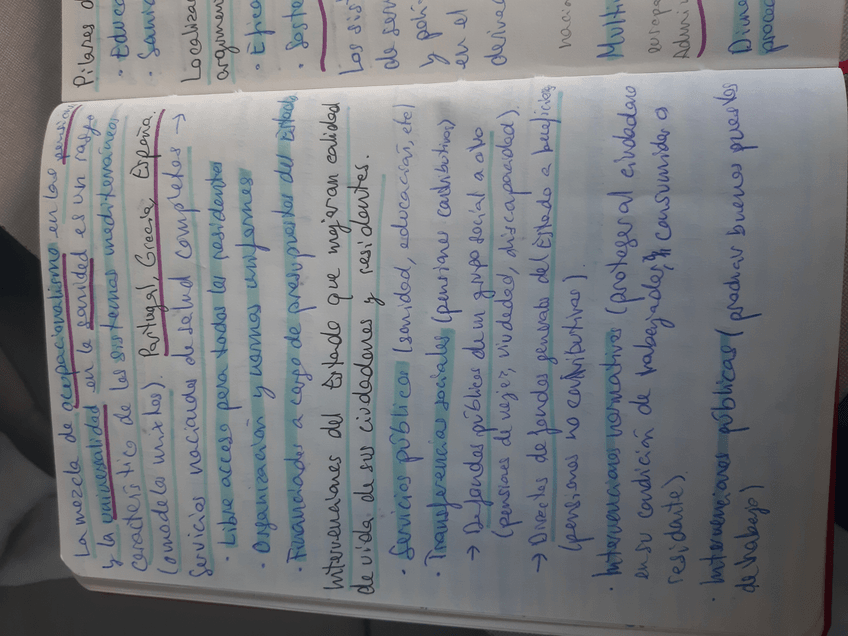 La mezcla de ocupacionalismo en las pensiones
y la universalidad en la sanidad es un rasgo
característico de los sistemas mediterráneos
(modelo mixtos). Portugal, Grecia, España.
Servicios nacionales de salud completos →
· Libre acceso para todos los residentes
· Organización y normas uniformes
· Financiados a cargo de presupuestos del Estado
Intervenciones del Estado que mejoran calidad
de vida de sus ciudadanos y residentes.
· Servicios públicos (sanidad, educación, etc)
· Transferencias sociales (pensiones contributivas)
→ De fondos públicos de un grupo social a otro
(pensiones de vejez, viudedad, discapacidad).
→ Directas de fondos generales del Estado a beneficios
(pensiones no contributivas).
· Intervenciones normativas (proteger al ciudadano
en su condición de trabajador, consumidor o
residente).
· Intervenciones públicas (producir buenos puestos
de trabajo)
Pilares d
· Educa
· Sani
Localiza
argumen
· Efica
· Soste
Los sist
de servi
y polí
en el
deriva
nacio
Multi
europe
Admin
Dime
proce